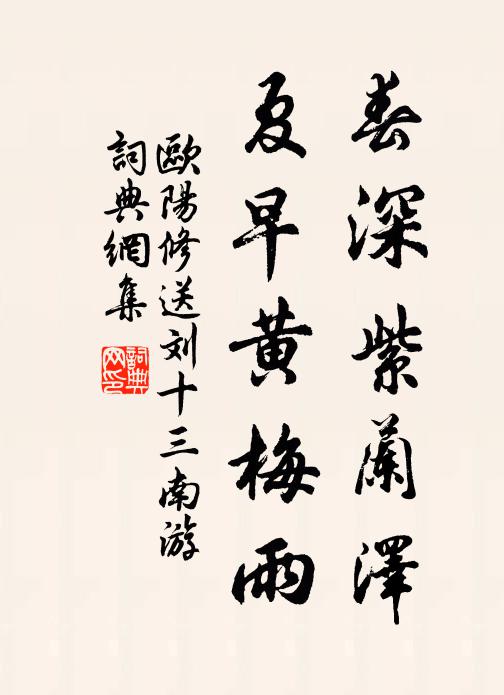 春深紫蘭澤
夏早黃梅雨
歐陽修送刘十三南游
詞典網集
詞典網印